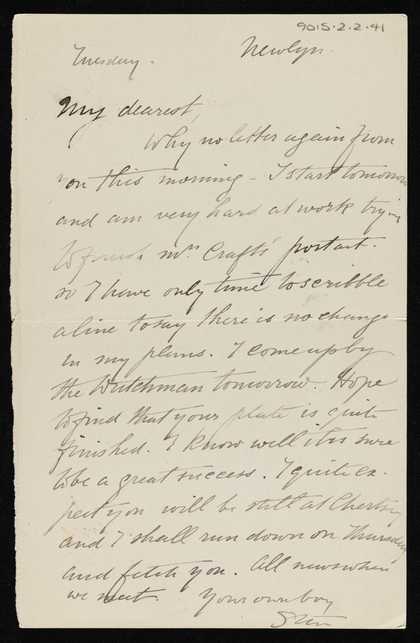 9015-2-2-41
Tuesday.
Newlyn.
My dearest,
Why no letter again from
you this morning - I start tomorrow
and am very hard at work trying
to finish Mrs Crafts' portait.
so I have only time to scribble
a line to say there is no change
in my plans. I come up by
the Dutchman tomorrow. Hope
to find that your plate is quite
finished. I know well it is sure
to be a great success. I quite ex-
pect you will be still at Chertsey
and I shall run down on Thursday
and fetch you. All news when
we meet. Your own boy